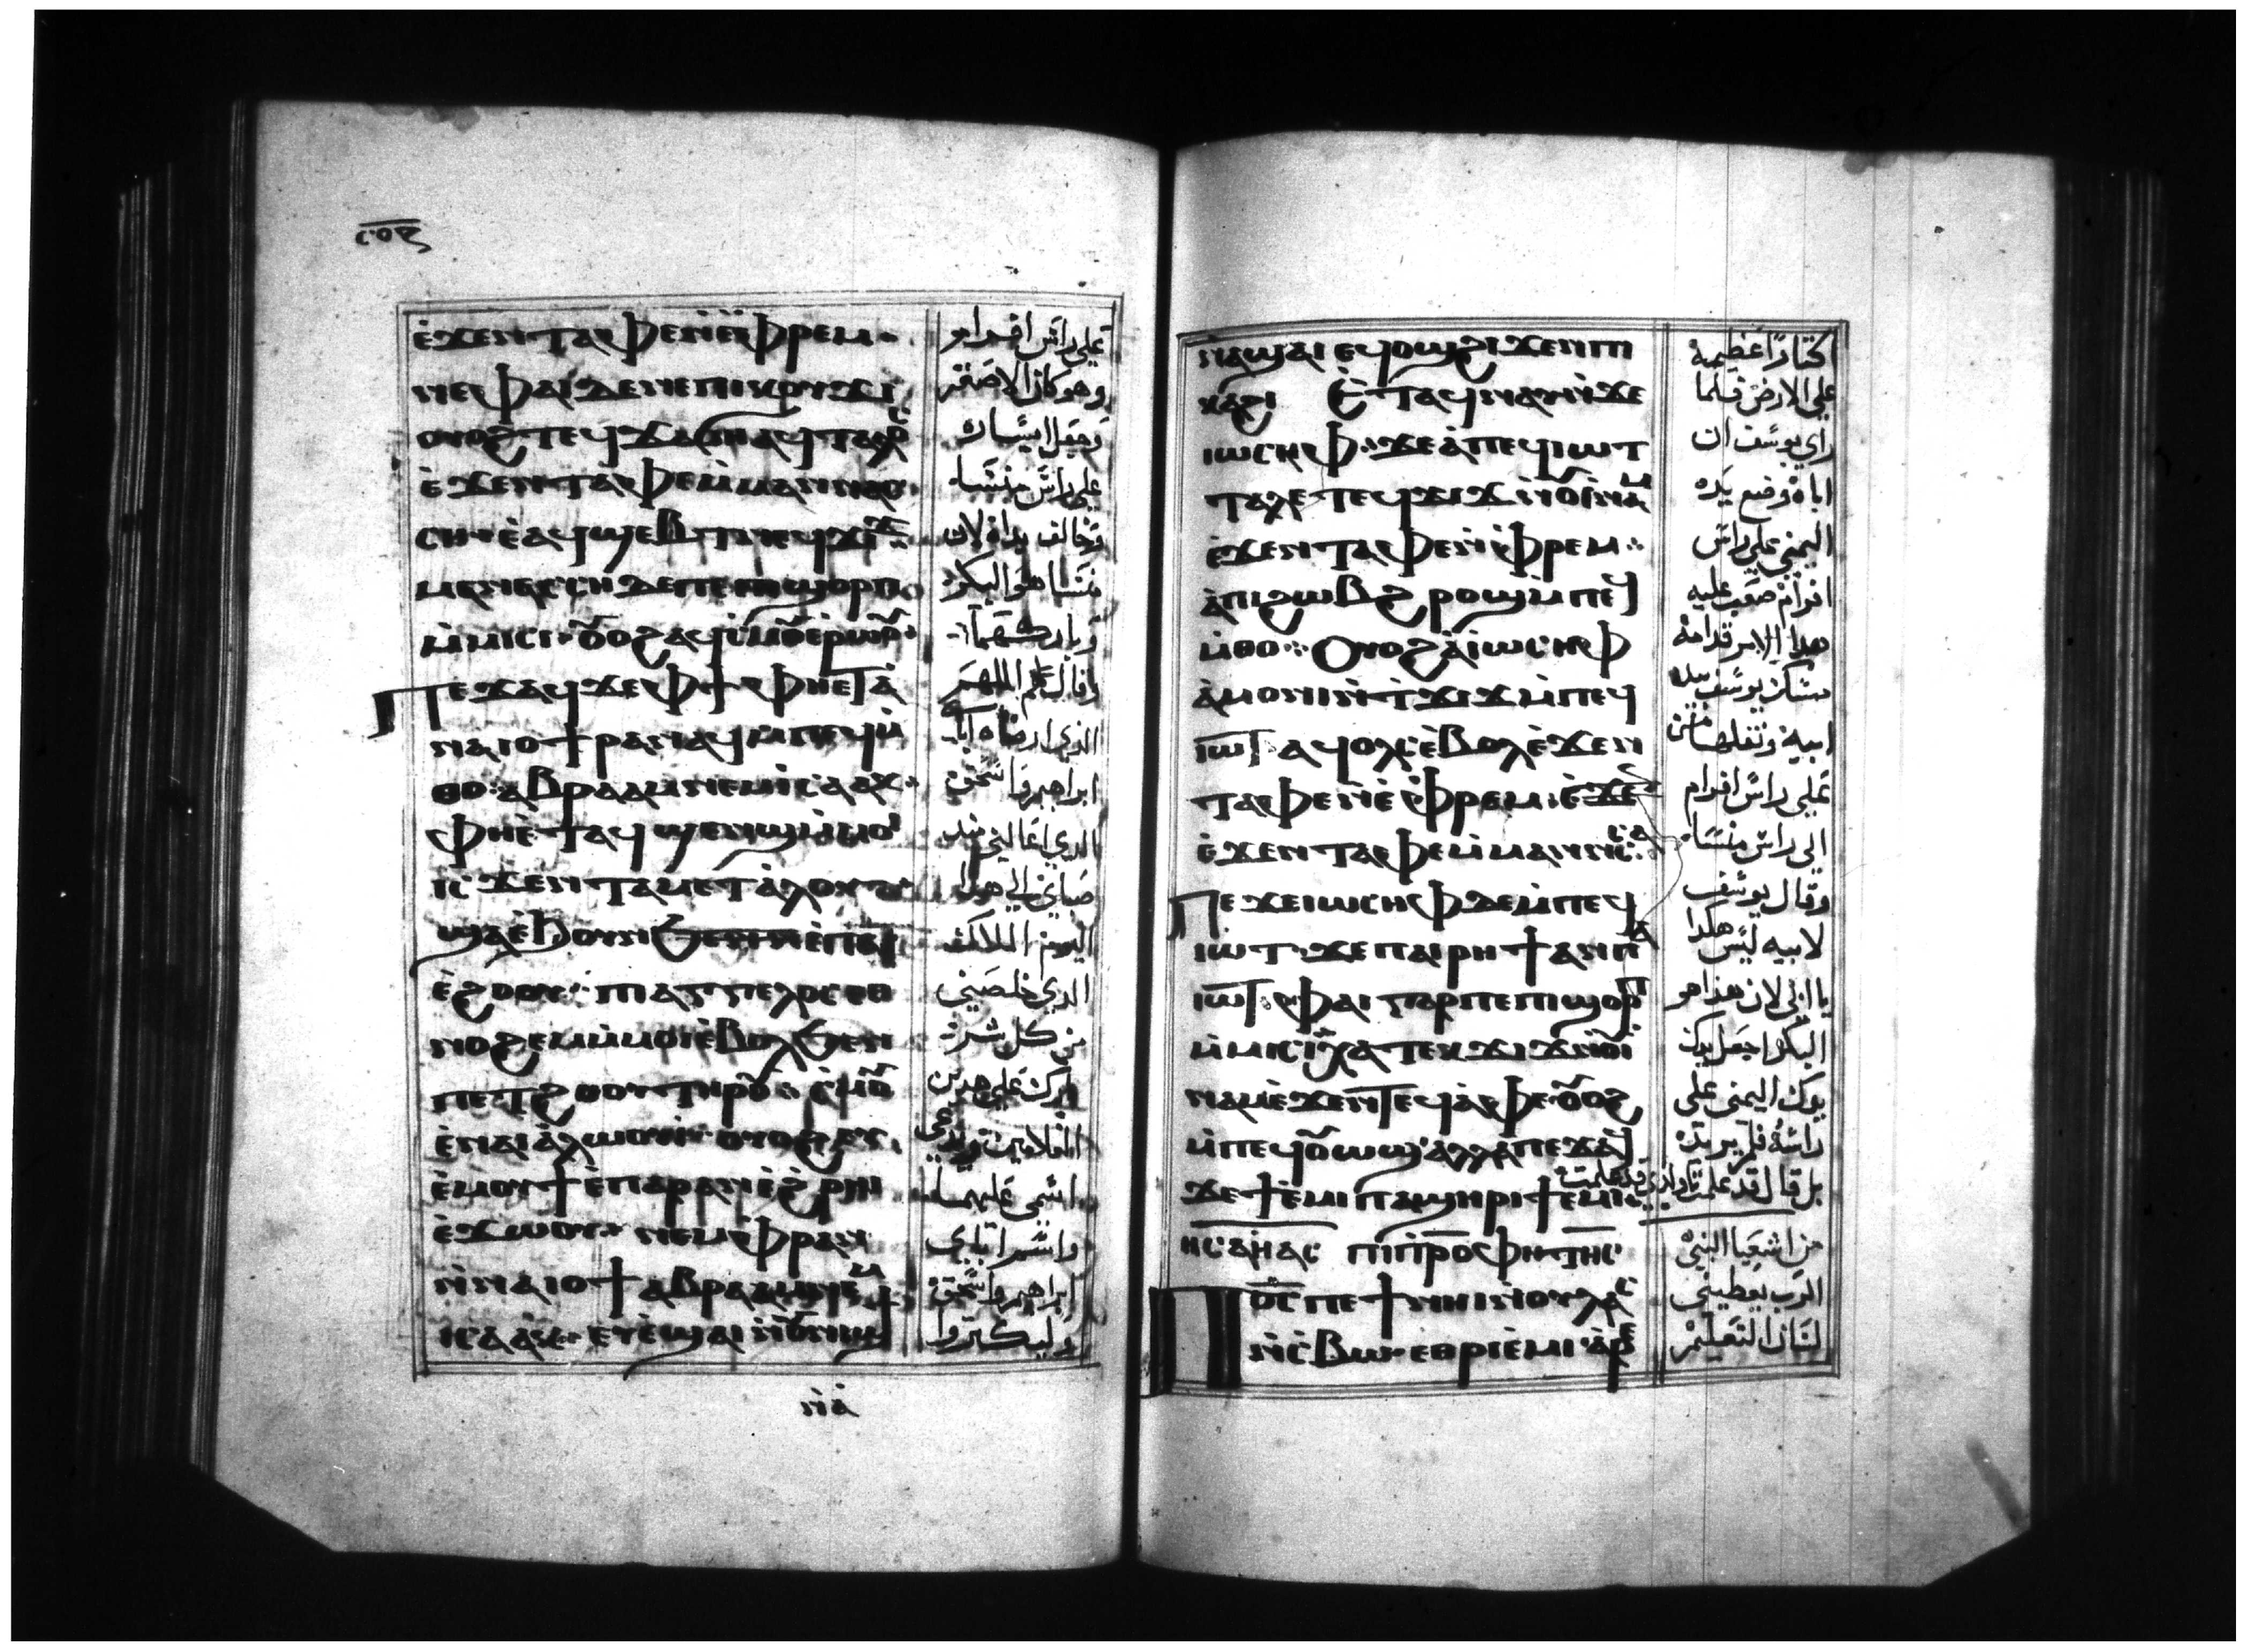 ⲥⲟⲋ
ⲉ̀ϫⲉⲛ ⲧⲁⲫⲉ ⲛ̀ⲉ̀ⲫⲣⲉⲙ
ⲛⲉ ⲫⲁⲓ ⲇⲉ ⲛⲉ ⲡⲓⲕⲟⲩϫⲓ
ⲟⲩⲟϩ ⲧⲉϥϫⲁϭⲏ ⲁϥⲧⲁⲗⲟⲥ
ⲉ̀ϫⲉⲛ ⲧⲁⲫⲉ ⲙ̀ⲙⲁⲛⲛⲁ
ⲥⲏ ⲉ̀ⲁϥϣⲉⲃⲧ ⲛⲉϥϫⲓϫ
ⲙⲁⲛⲁⲥⲥⲏ ⲇⲉ ⲡⲉ ⲡⲓϣⲟⲣⲡ
ⲙ̀ⲙⲓⲥⲓ ⲟⲩⲟϩ ⲁϥⲥ̀ⲙⲟⲩ ⲉ̀ⲣⲱⲟⲩ
ⲡⲉϫⲁϥ ϫⲉ ⲫϯ ⲫⲏⲉⲧⲁ
ⲛⲁⲓⲟϯ ⲣⲁⲛⲁϥ ⲙ̀ⲡⲉϥⲙ̀
ⲑⲟ ⲁⲃⲣⲁⲁⲙ ⲛⲉⲙ ⲓⲥⲁⲁⲕ
ⲫⲏⲉ̀ⲧⲁϥϣⲁⲛϣ ⲙ̀ⲙⲟⲓ
ⲓⲥϫⲉⲛ ⲧⲁⲙⲉⲧⲁ̀ⲗⲟⲩ
ϣⲁ ⲉ̀ϧⲟⲩⲛ
ⲉ̀ϩⲟⲟⲩ ⲡⲓⲁⲅⲅⲉⲗⲟⲥ ⲉⲑ
ⲛⲟϩⲉⲙ ⲙ̀ⲙⲟⲓ ⲉ̀ⲃⲟⲗ ϧⲉⲛ
ⲡⲉⲧϩⲱⲟⲩ ⲧⲏⲣⲟⲩ ⲥ̀ⲙⲟⲩ
ⲉ̀ⲛⲁⲓⲁ̀ⲗⲱⲟⲩⲓ̀ ⲟⲩⲟϩ ⲉⲩ
ⲉ̀ⲙⲟⲩϯ ⲉ̀ⲡⲁⲣⲁⲛ ⲉ̀ϩ̀ⲣⲏⲓ
ⲉ̀ϫⲱⲟⲩ ⲛⲉⲙ ⲫⲣⲁⲛ
ⲛ̀ⲛⲁⲓⲟϯ ⲁⲃⲣⲁⲁⲙ ⲛⲉⲙ
ⲓⲥⲁⲁⲕ ⲉⲩⲉ̀ⲁϣⲁⲓ ⲛ̀ⲟⲩⲛⲓϣϯ
ⲛⲁ
على راس افرام
وهو كان الاصغر
وجعل ايساره
على راس منسا
وخالف يداه لان
منسا هو البكر
وباركهما
وقال لهم اللهم
الذي ارضاه اباي
ابراهيم واسحق
الذي اعالني منذ
صباي الى هذا
اليوم الملاك
الذي خلصني
من كل شر
بارك على هذين
الغلامين ويدعى
اسمي عليهما
واسم اباي
ابراهيم واسحق
وليكثروا
ⲛⲁϣⲁⲓ ⲉϥⲟϣ ϩⲓϫⲉⲛ ⲡⲓ
ⲕⲁϩⲓ ⲉ̀ⲧⲁϥⲛⲁⲩ ⲛ̀ϫⲉ
ⲓⲱⲥⲏⲫ ϫⲉ ⲁ̀ⲡⲉϥⲓⲱⲧ
ⲧⲁⲗⲉ ⲧⲉϥϫⲓϫ ⲛ̀ⲟⲩⲓ̀ⲛⲁⲙ
ⲉ̀ϫⲉⲛ ⲧⲁⲫⲉ ⲛ̀ⲉ̀ⲫⲣⲉⲙ
ⲁ̀ⲡⲓϩⲱⲃ ϩⲣⲟϣ ⲙ̀ⲡⲉϥ
ⲙ̀ⲑⲟ ⲟⲩⲟϩ ⲁ̀ⲓⲱⲥⲏⲫ
ⲁ̀ⲙⲟⲛⲓ ⲛ̀ⲧϫⲓϫ ⲙ̀ⲡⲉϥ
ⲓⲱⲧ ⲁϥⲟⲗⲥ ⲉ̀ⲃⲟⲗ ⲉ̀ϫⲉⲛ
ⲧⲁⲫⲉ ⲛ̀ⲉ̀ⲫⲣⲉⲙ
ⲉ̀ϫⲉⲛ ⲧⲁⲫⲉ ⲙ̀ⲙⲁⲛⲛⲁⲥ
ⲡⲉϫⲉ ⲓⲱⲥⲏⲫ ⲇⲉ ⲙ̀ⲡⲉϥ
ⲓⲱⲧ ϫⲉ ⲡⲁⲓⲣⲏϯ ⲁⲛ ⲡⲁ
ⲓⲱⲧ ⲫⲁⲓ ⲅⲁⲣ ⲡⲉ ⲡⲓϣⲟⲣⲡ
ⲙ̀ⲙⲓⲥⲓ ⲭⲁ ⲧⲉⲕϫⲓϫ ⲛ̀ⲟⲩⲓ̀
ⲛⲁⲙ ⲉ̀ϫⲉⲛ ⲧⲉϥⲁ̀ⲫⲉ ⲟⲩⲟϩ
ⲙ̀ⲡⲉϥⲟⲩⲱϣ ⲁⲗⲗⲁ ⲡⲉϫⲁϥ
ϫⲉ ϯⲉ̀ⲙⲓ ⲡⲁϣⲏⲣⲓ ϯⲉ̀ⲙⲓ
ⲏⲥⲁⲏⲁⲥ ⲡⲓⲡⲣⲟⲫⲏⲧⲏⲥ
ⲡⲟⲥ ⲡⲉⲧϯ ⲛⲏⲓ ⲛ̀ⲟⲩⲗⲁⲥ
ⲛ̀ⲥ̀ⲃⲱ ⲉⲑⲣⲓⲉ̀ⲙⲓ ⲁ̀ⲣⲉ
اكثارًا عظيمة
على الارض فلما
راى يوسف ان
اباه وضع يده
اليمنى على راس
افرام صعب عليه
هذا الامر قدامه
مسك يوسف بيد
ابيه ونقلها من
على راس افرام
الى راس منسا
وقال يوسف
لابيه ليس هكذا
يا ابي لان هذا هو
البكر اجعل يدك
يدك اليمنى على
راسه فلم يريد
بل قال قد علمت يا ولدي قد علمت
من اشعيا النبي
الرب يعطيني
لسان التعليم